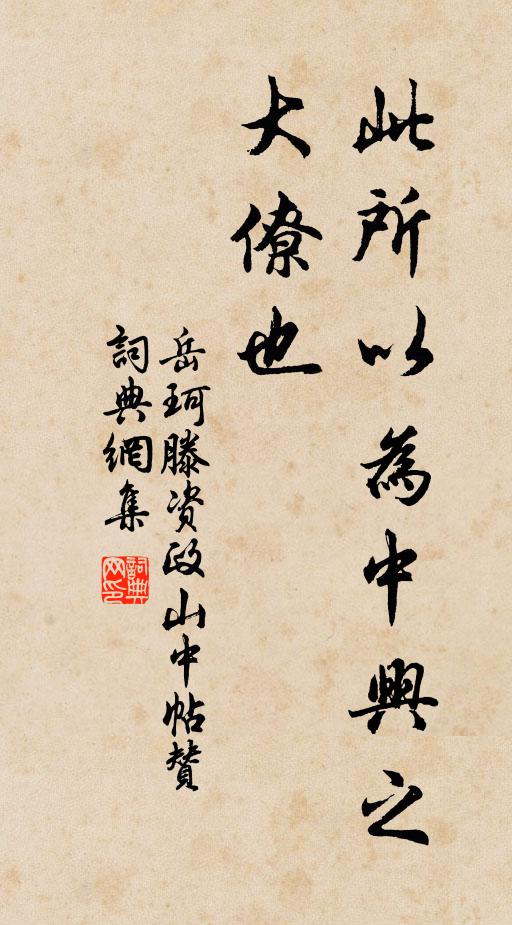 此所以為中興之
大僚也
岳珂滕资政山中帖贊
詞典網集
詞典網印